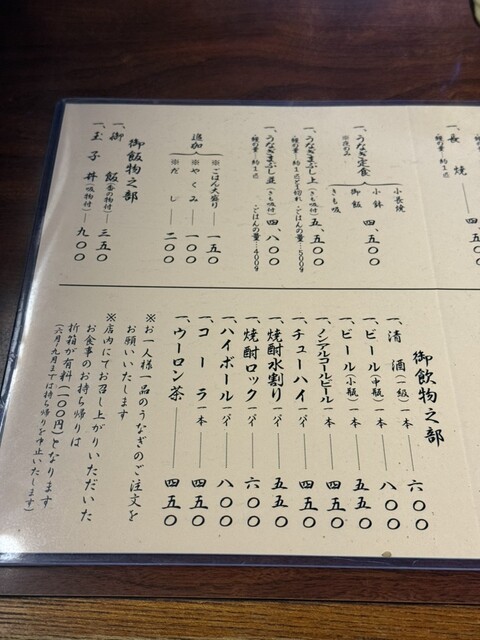 一、長焼
一、うなぎ定食
※夜のみ
小長焼
小鉢
御飯
きも吸
四、五〇〇
一、うなぎまぶし上(きも吸付)五、五〇〇
一、うなぎまぶし並(きも吸付)四、八〇〇
追加
※ごはん大盛り 一五〇
※やくみ 一〇〇
※だし 二〇〇
御飯物之部
一、御飯(香の物付)三五〇
一、玉子丼(吸物付)九〇〇
御飲物之部
一、清酒(一級)一本 六〇〇
一、ビール(中瓶)一本 八〇〇
一、ビール(小瓶)一本 五五〇
一、ノンアルコールビール一本 四五〇
一、チューハイ 一パイ 四五〇
一、焼酎水割り 一パイ 五五〇
一、焼酎ロック 一パイ 六〇〇
一、ハイボール 一パイ 八〇〇
一、コーラ 一本 四五〇
一、ウーロン茶 四五〇
※お一人様一品のうなぎのご注文を
お願いいたします
※店内にてお召し上がりいただいた
お食事のお持ち帰りは
折箱が有料(一〇〇円)となります
(六月〜九月までは持ち帰りを中止いたします)